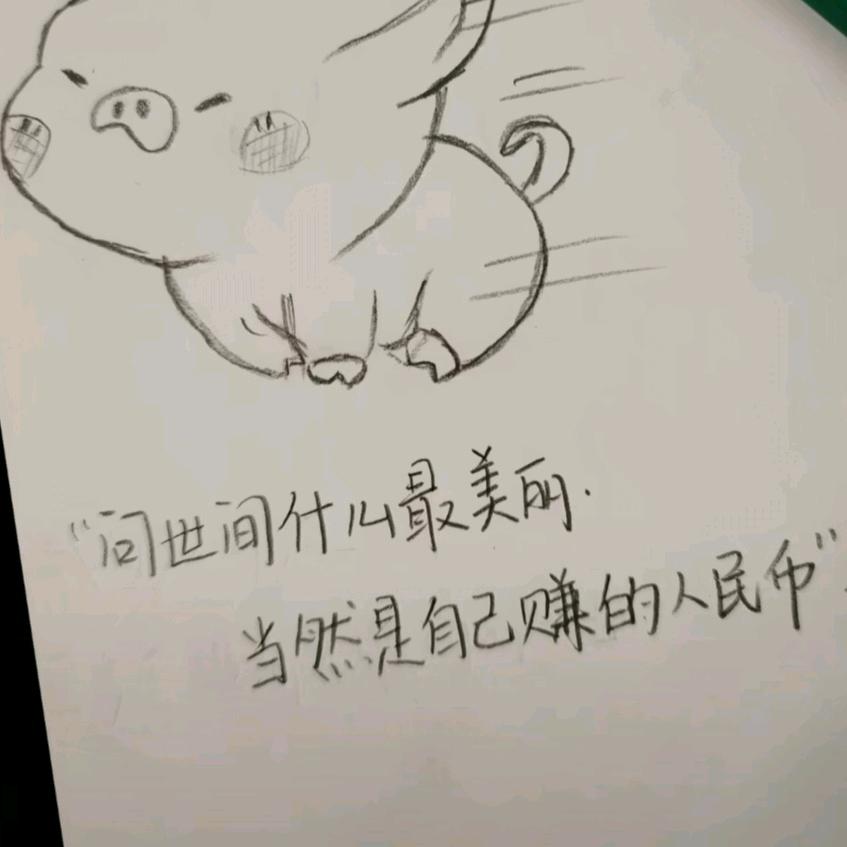 “问世间什么最美丽.
当然是自己赚的人民币”.